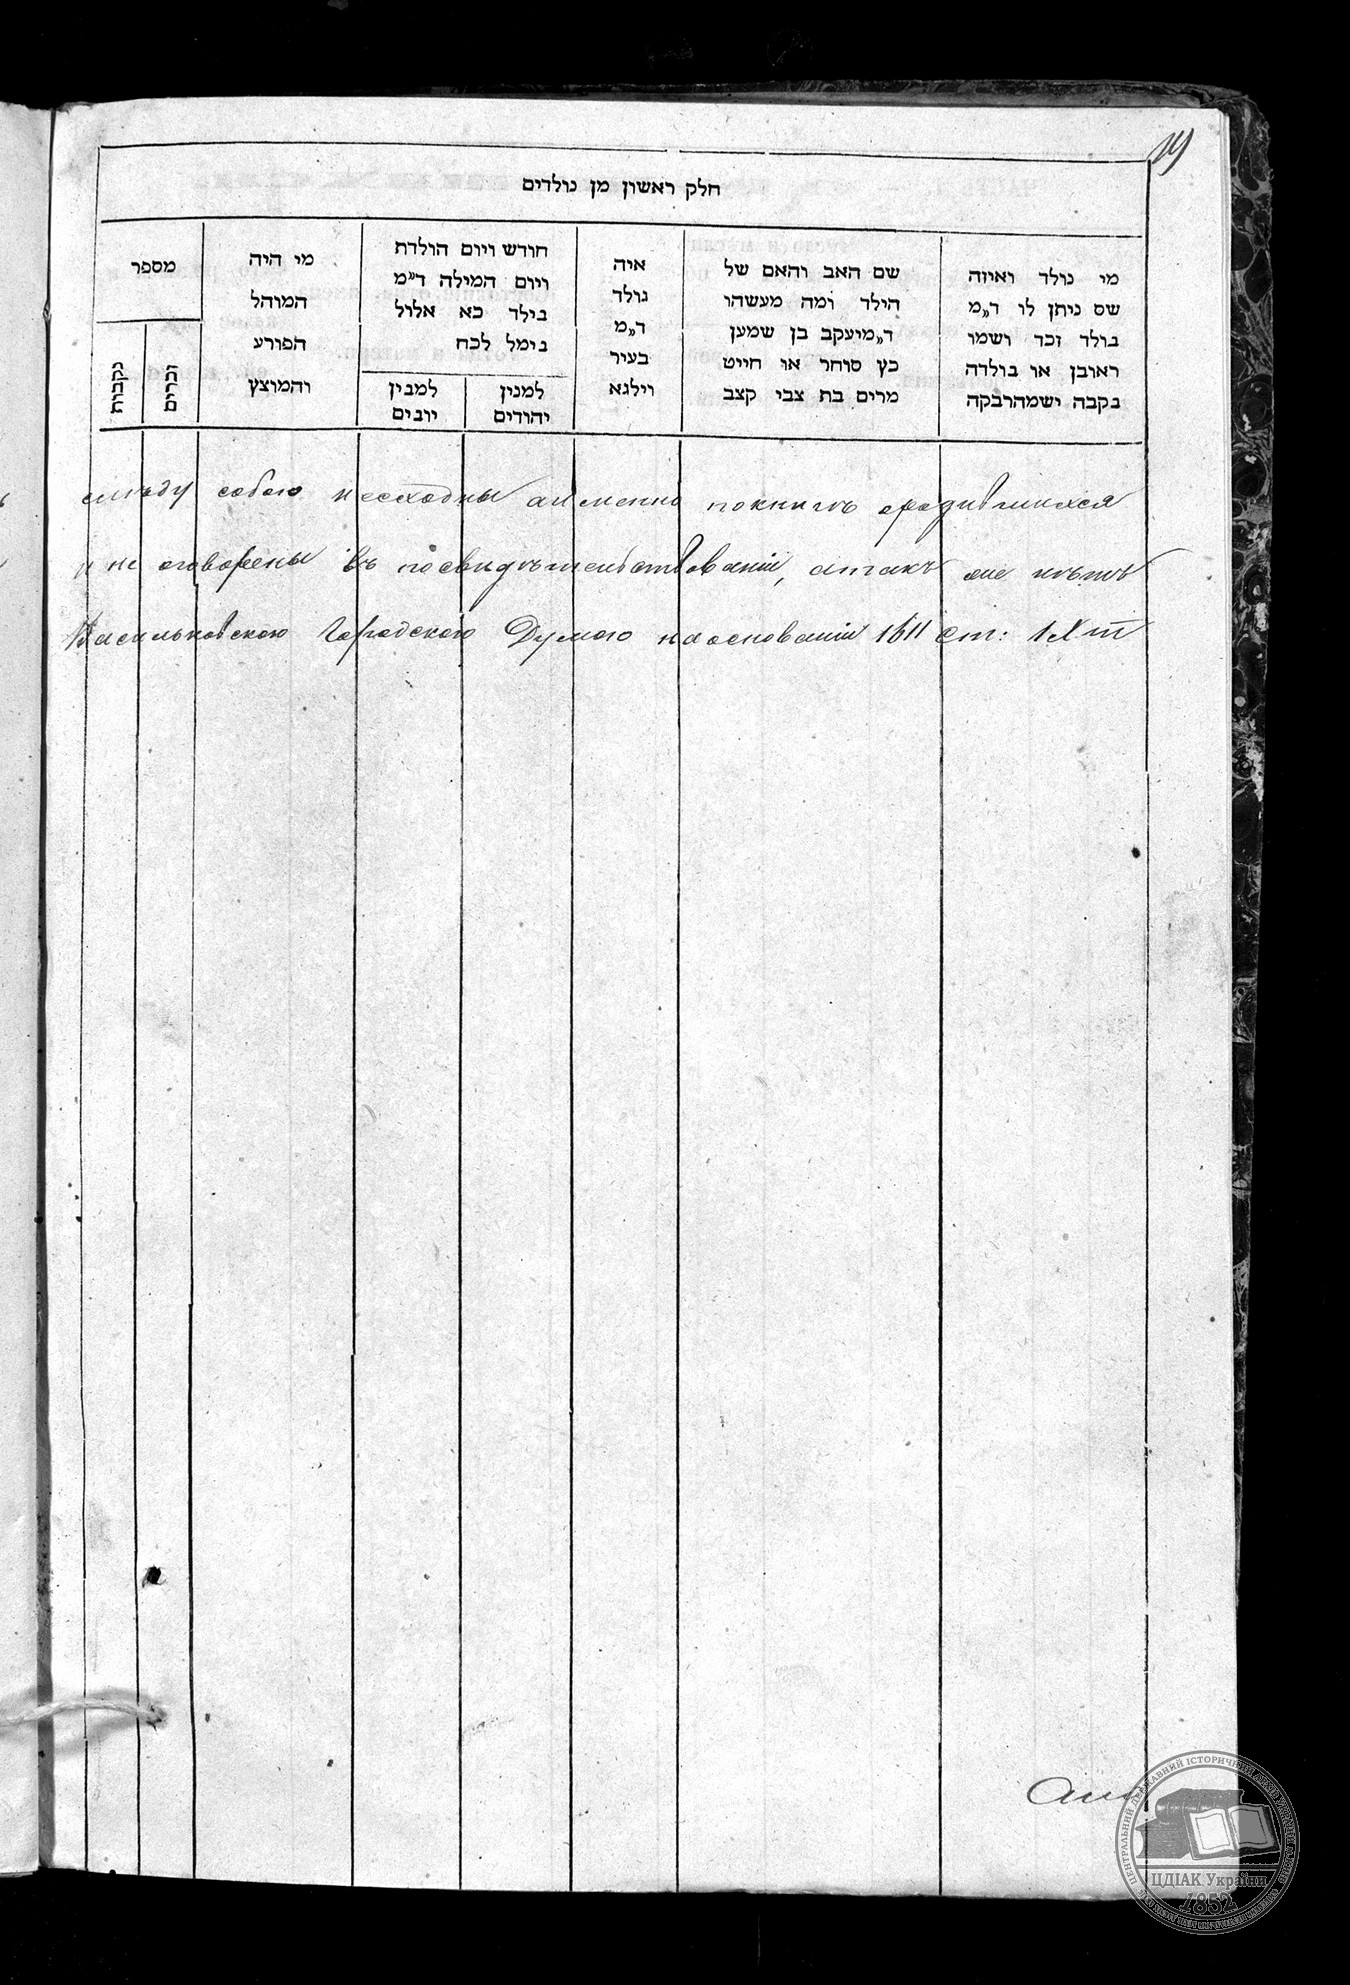 19
חלק ראשון מן נולדים
מי נולד ואיזה
שם ניתן לו ד״מ
בולד זכר ושמו
ראובן או בולדה
נקבה ישמהרבקה
שם האב והאם של
הילד ומה מעשהו
ד״מיעקב בן שמען
כץ סוחר או חייט
מרים בת צבי קצב
איה
נולד
ד״מ
בעיר
וילנא
חודש ויום הולדת
ויום המילה ד״מ
בילד כא אלול
בימל לכח
למנין
יהודים
למנין
יונים
מי היה
המוהל
הפורע
והמוצץ
מספר
זכרים
נקבות
между собою несходны а именно по книгѣ о родившихся
и не оговорены въ посвидѣтельствованіи, а такъ же нѣтъ
Васильковскою Городскою Думою на основаніи 1611 ст: IX т
ЦЕНТРАЛЬНИЙ ДЕРЖАВНИЙ ІСТОРИЧНИЙ АРХІВ УКРАЇНИ
ЦДІАК України
1852